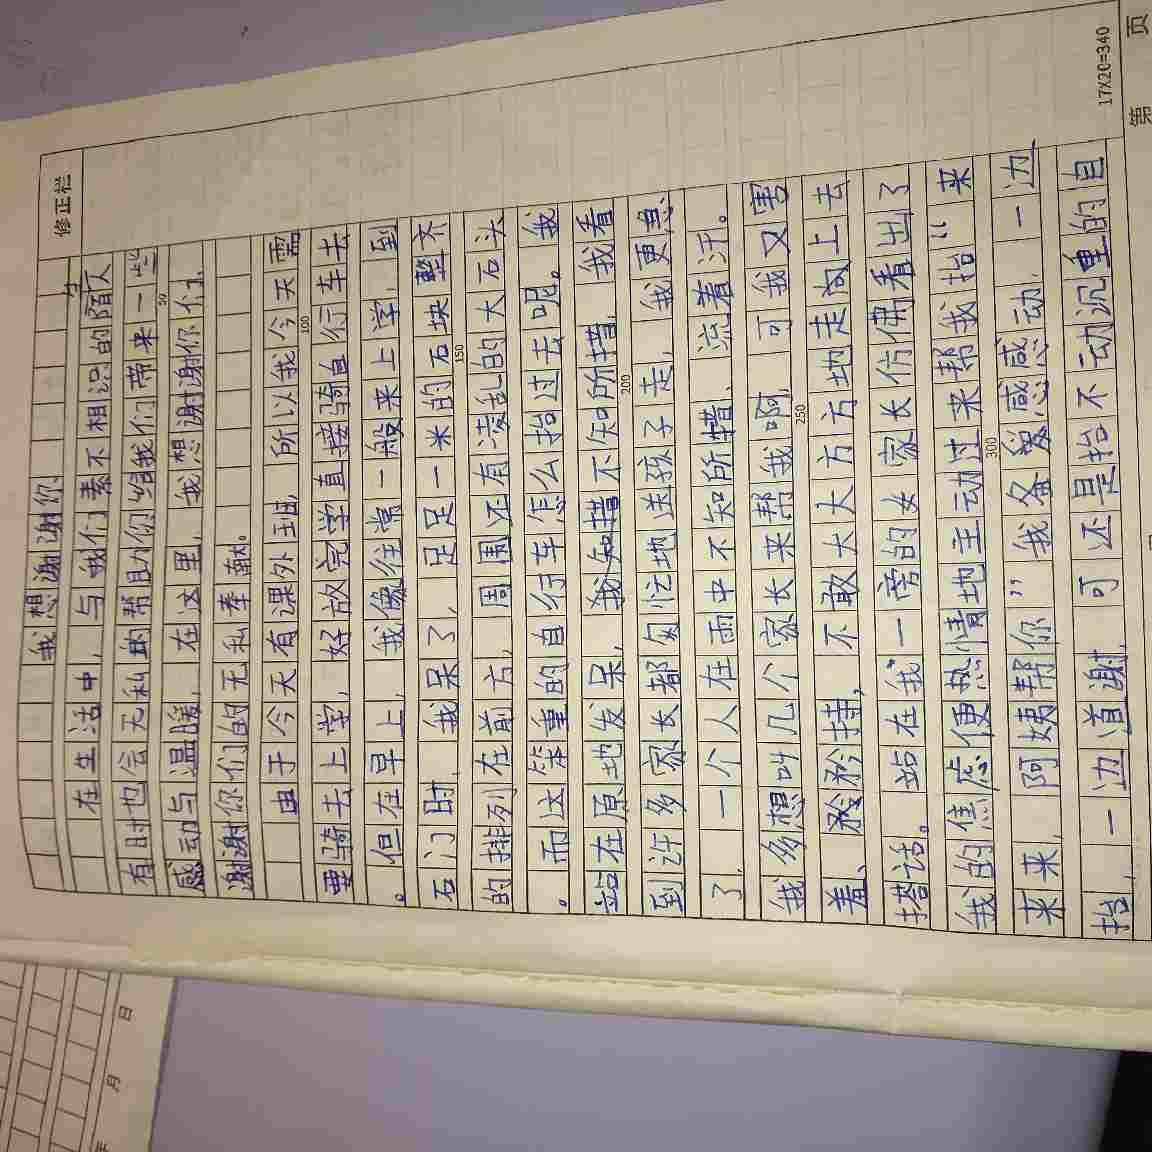 修正栏
我想谢谢你
在生活中，与我们素不相识的陌生人
有时也会无私的帮助们给我们带来一些
感动与温暖，在这里，我想谢谢你们，
谢谢你们的无私奉献。
由于今天有课外班，所以我今天需
要骑去上学，好放完学直接骑自行车去
。但在早上，我像往常一般来上学，到
石门时，我呆了，足足一米的石块整齐
的排列在前方，周围还有凌乱的大石头
。而这笨重的自行车怎么抬过去呢。我
站在原地发呆，我知措不知所措，我看
到许多家长都匆忙地送孩子走，我更急
了，一个人在雨中不知所措，流着汗。
我多想叫几个家长来帮我啊，可我又害
羞、矜持，不敢大大方方地走向上去
搭话。站在我一旁的女家长仿佛看出了
我的焦虑便热情地主动过来帮我抬“来
来来，阿姨帮你”我备受感感动，一边
抬，一边道谢，可还是抬不动沉重的自
50
100
150
200
250
300
17X20=340
第 页
年 月 日